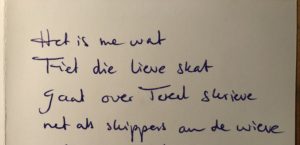 Het is me wat
Fiet die lieve skat
gaat over Texel skrieve
net als skippers an de wieve